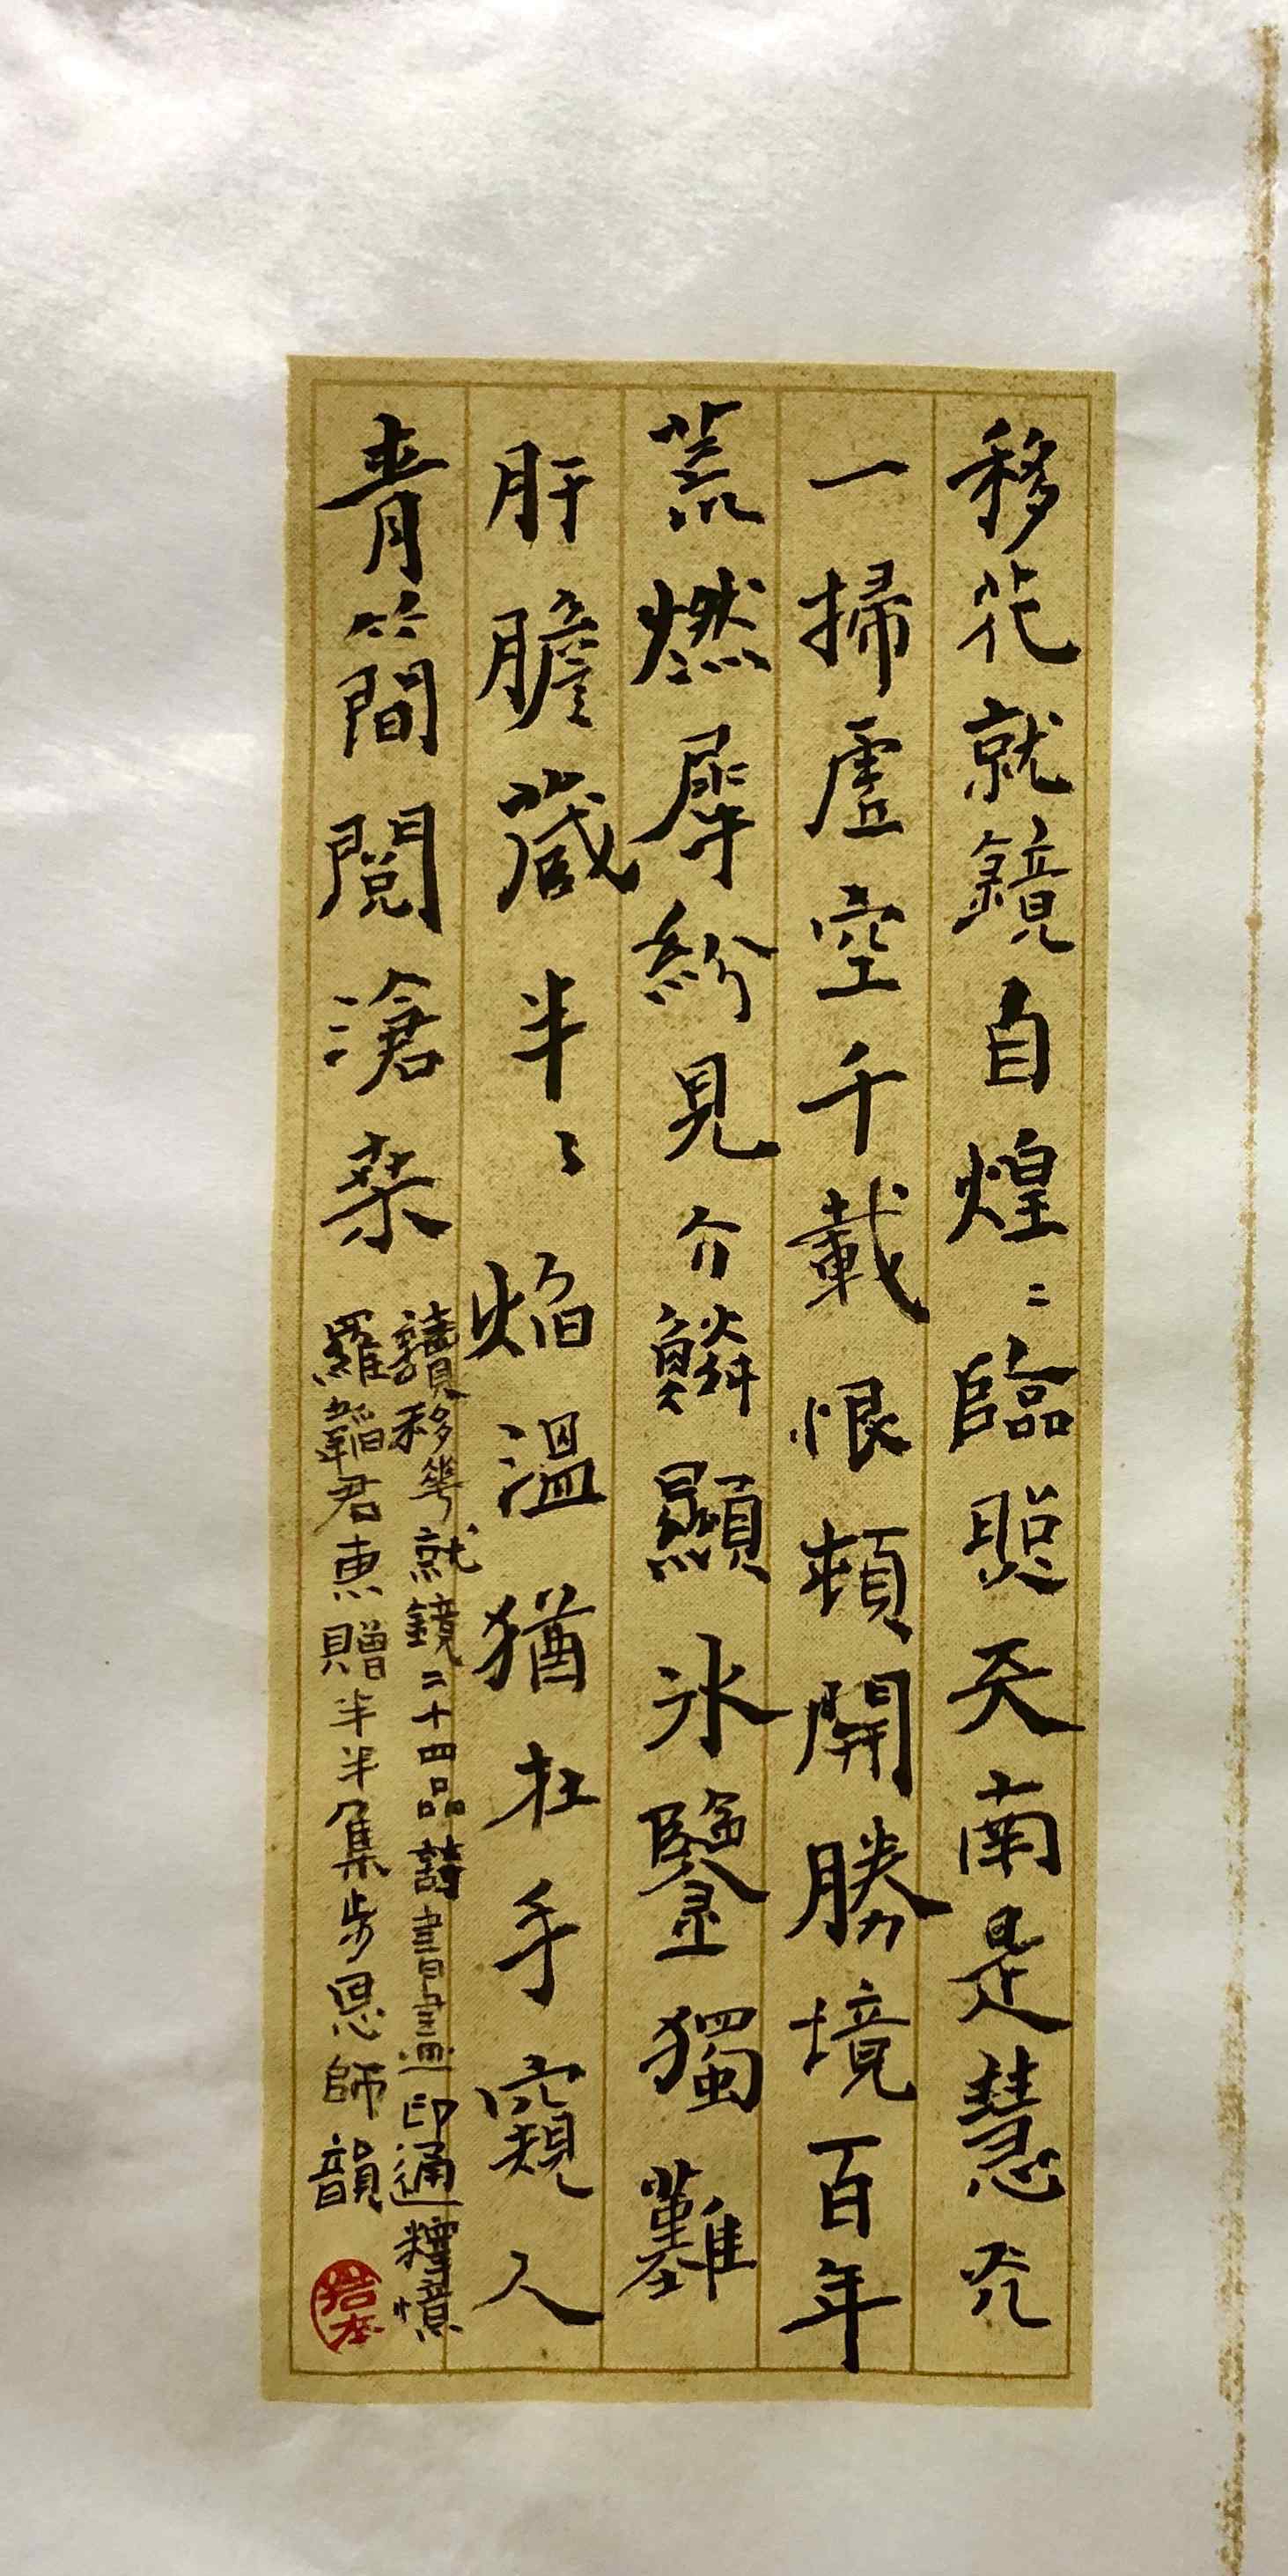 移花就鏡自煌〻臨照天南是慧光
一掃虛空千載恨頓開勝境百年
荒燃犀紛見介鱗顯氷鑒獨難
肝膽藏半〻焰溫猶在手窺人
青簡閱滄桒
讀移華就鏡二十四品詩書畫印通釋憶
羅韜君惠贈半半集步恩師韻